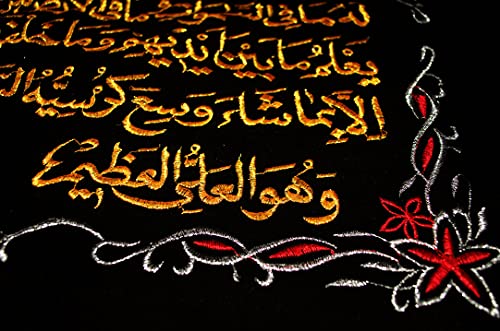 له ما في السموات وما في الارض
يعلم ما بين ايديهم وما خلفهم
الا بما شاء وسع كرسيه
وهو العلي العظيم